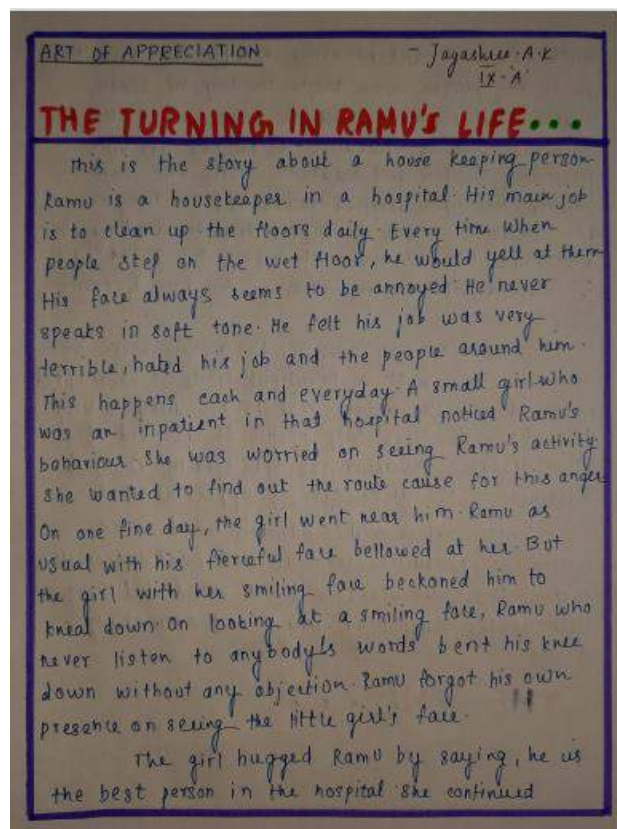 ART OF APPRECIATION
- Jayashree.A.K
IX-'A'
THE TURNING IN RAMU'S LIFE...
This is the story about a house keeping person
Ramu is a housekeeper in a hospital. His main job
is to clean up the floors daily. Every time when
people step on the wet floor, he would yell at them
His face always seems to be annoyed. He never
speaks in soft tone. He felt his job was very
terrible, hated his job and the people around him.
This happens each and everyday. A small girl who
was an inpatient in that hospital noticed Ramu's
bahaviour. She was worried on seeing Ramu's activity.
She wanted to find out the route cause for this anger
On one fine day, the girl went near him. Ramu as
usual with his fierceful face bellowed at her. But
the girl with her smiling face beckoned him to
kneal down. On looking at a smiling face, Ramu who
never listen to anybody's words bent his knee
down without any objection. Ramu forgot his own
presence on seeing the little girl's face.
The girl hugged Ramu by saying, he is
the best person in the hospital. She continued